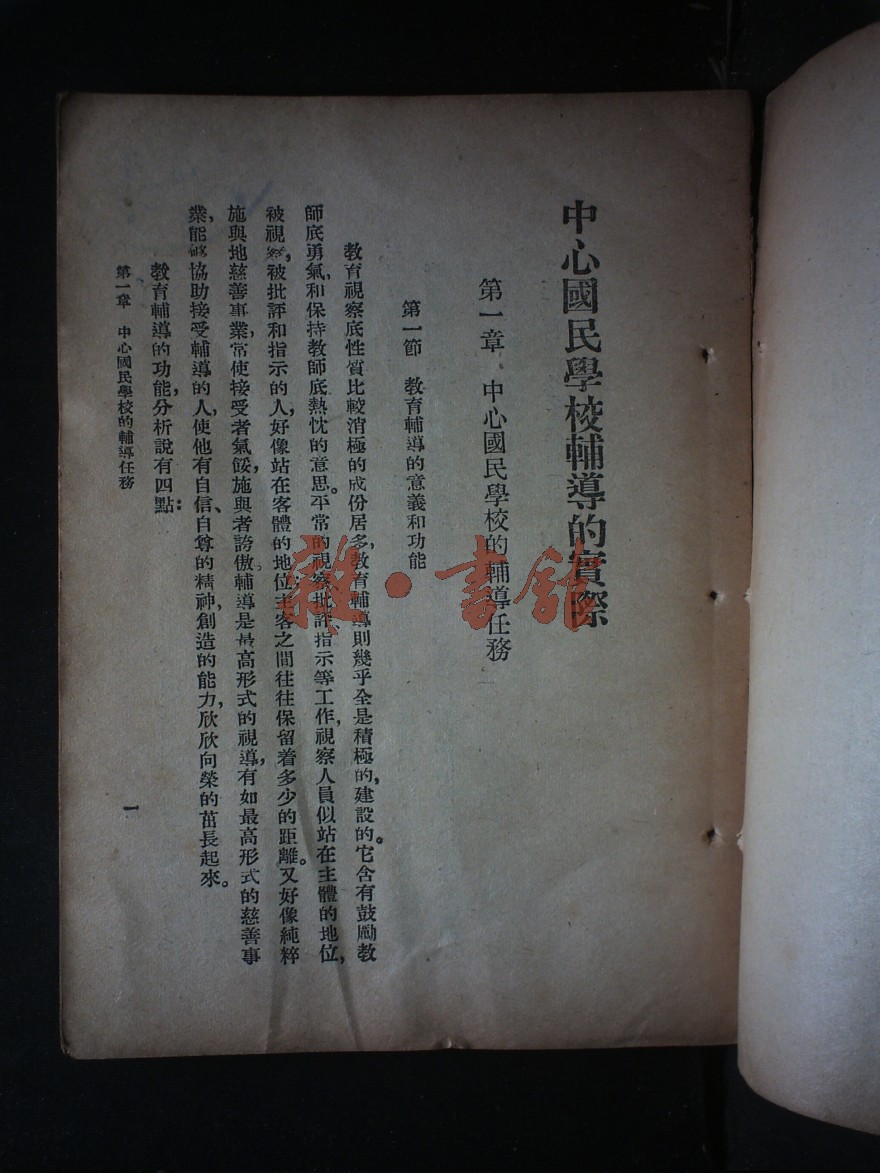 中心國民學校輔導的實際
第一章 中心國民學校的輔導任務
第一節 教育輔導的意義和功能
教育視察底性質比較消極的成份居多,教育輔導則幾乎全是積極的,建設的。它含有鼓勵教
師底勇氣,和保持教師底熱忱的意思。平常的視察、批評、指示等工作,視察人員似站在主體的地位,
被視察,被批評和指示的人,好像站在客體的地位;主客之間往往保留着多少的距離。又好像純粹
施與地慈善事業,常使接受者氣餒,施與者誇傲。輔導是最高形式的視導,有如最高形式的慈善事
業,能够協助接受輔導的人,使他有自信、自尊的精神,創造的能力,欣欣向榮的茁長起來。
教育輔導的功能,分析說有四點:
第一章 中心國民學校的輔導任務
一
雜·書館